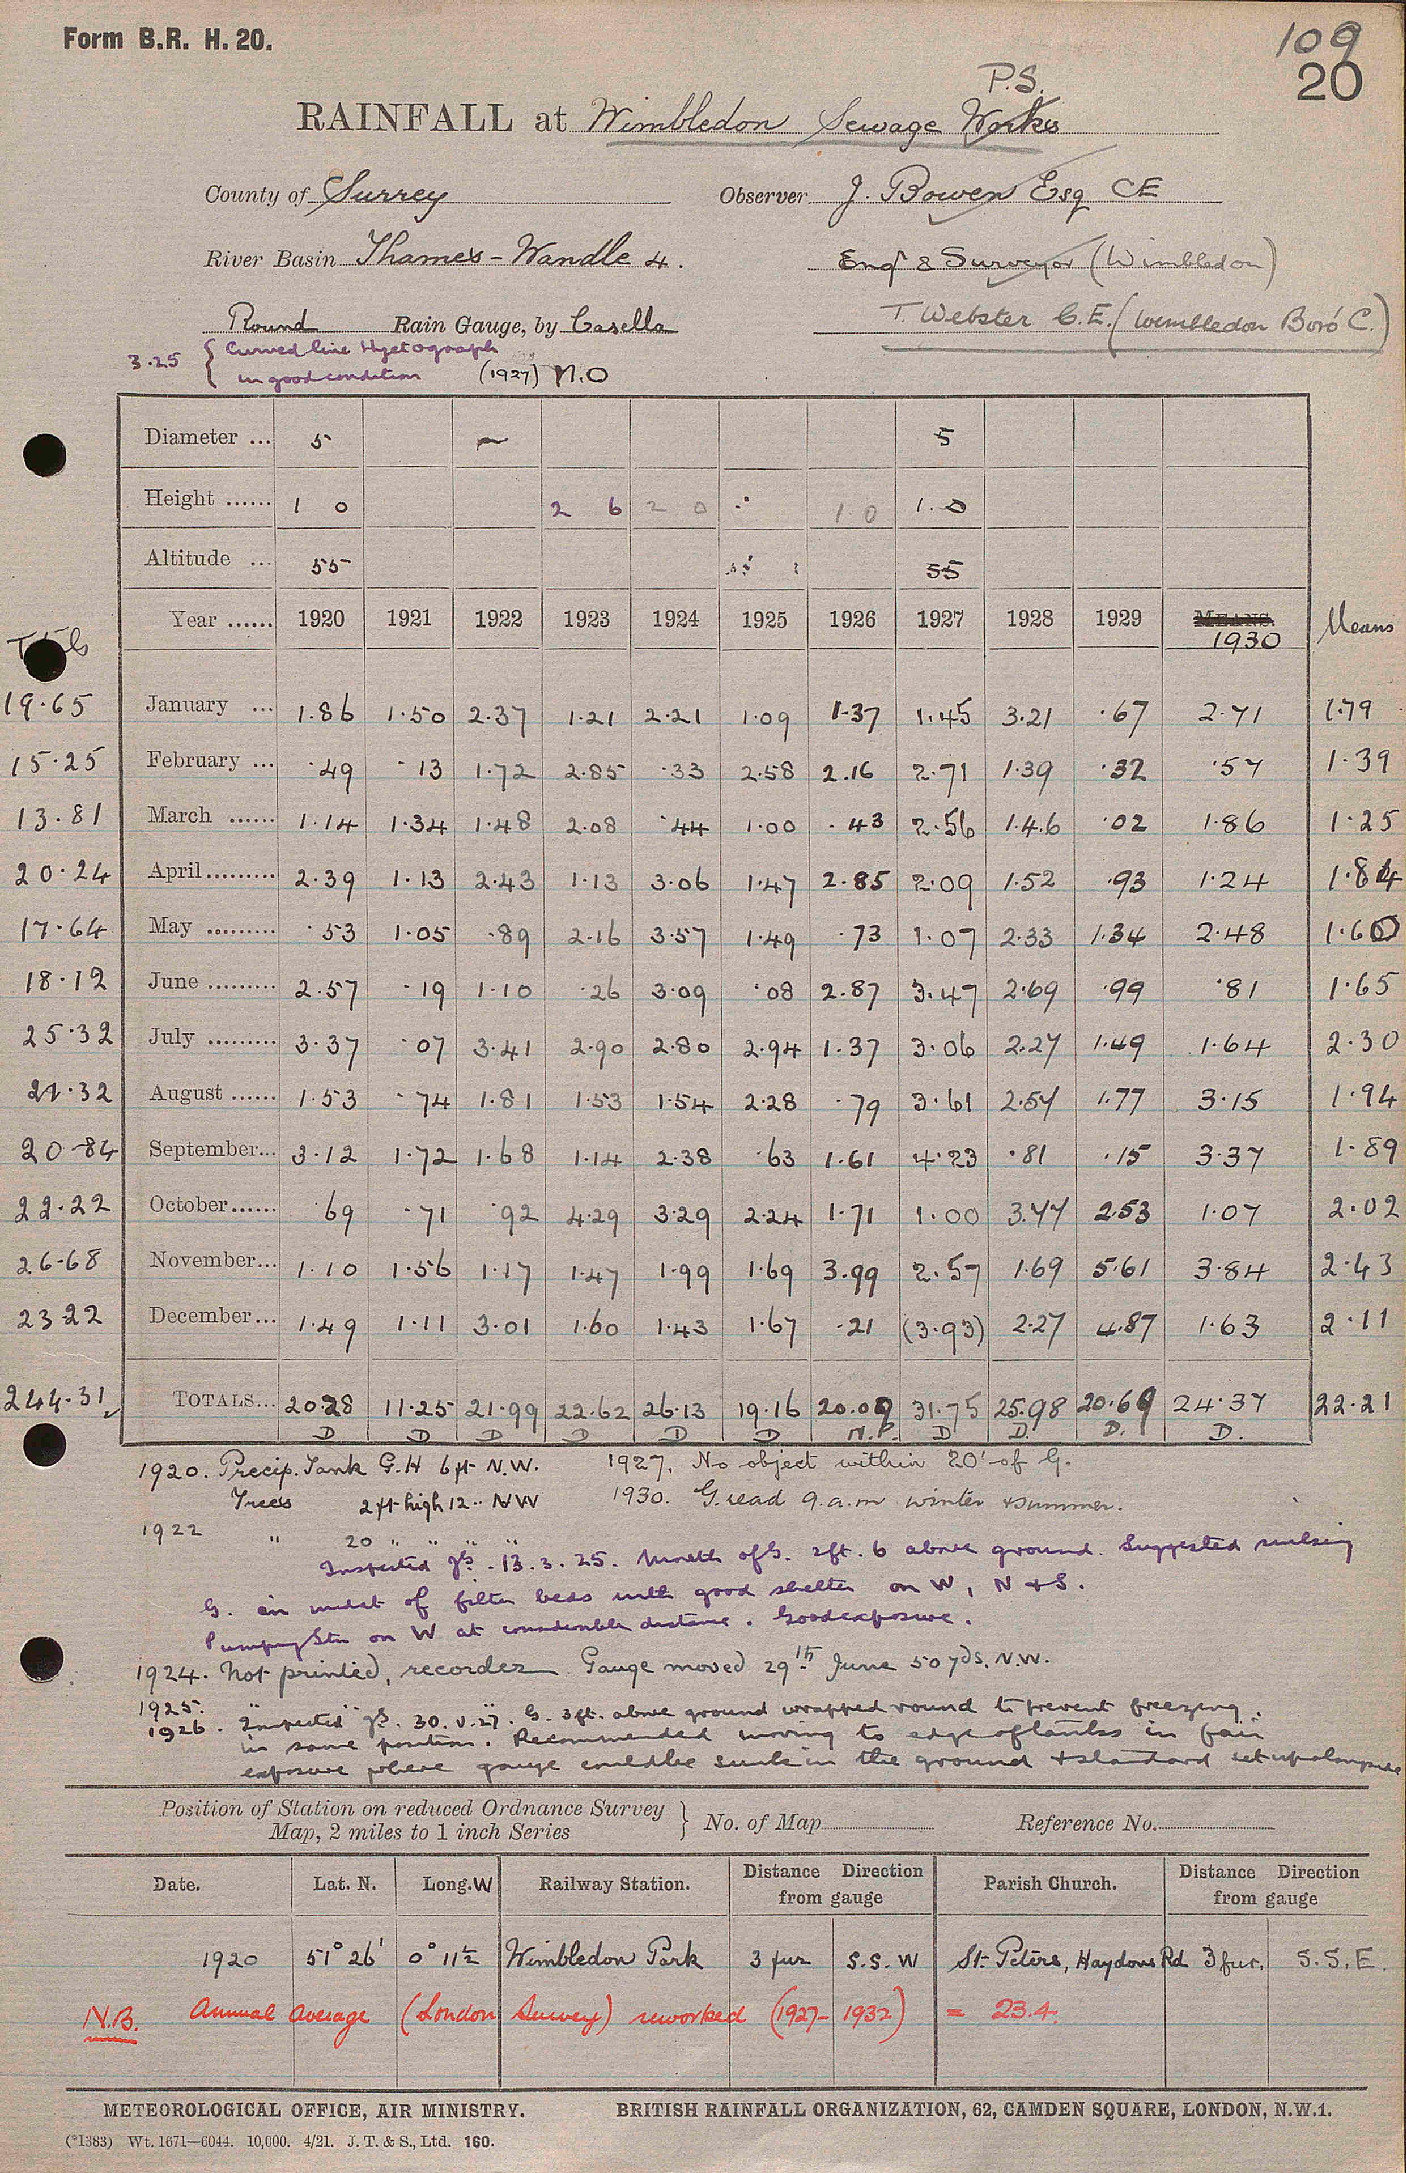 Form B.R. H. 20.
109
20
P.S.
RAINFALL at Wimbledon Sewage Works
County of Surrey Observer J. Bowen Esq CE
River Basin Thames - Wandle 4. Eng^r & Surveyor (Wimbledon)
Round Rain Gauge, by Casella T. Webster C.E. (Wimbledon Boro' C.)
3.25 { Curved line Hyetograph
in good condition (1927) M.O
Diameter ... 5 5
Height ...... 1 0 2 6 2 0 1 0 1. 0
Altitude ... 55 55
Year ...... 1920 1921 1922 1923 1924 1925 1926 1927 1928 1929 MEANS. 1930 Means
19.65 January ... 1.86 1.50 2.37 1.21 2.21 1.09 1.37 1.45 3.21 .67 2.71 1.79
15.25 February ... .49 .13 1.72 2.85 .33 2.58 2.16 2.71 1.39 .32 .57 1.39
13.81 March ...... 1.14 1.34 1.48 2.08 .44 1.00 .43 2.56 1.46 .02 1.86 1.25
20.24 April ......... 2.39 1.13 2.43 1.13 3.06 1.47 2.85 2.09 1.52 .93 1.24 1.84
17.64 May ......... .53 1.05 .89 2.16 3.57 1.49 .73 1.07 2.33 1.34 2.48 1.60
18.12 June ......... 2.57 .19 1.10 .26 3.09 .08 2.87 3.47 2.69 .99 .81 1.65
25.32 July ......... 3.37 .07 3.41 2.90 2.80 2.94 1.37 3.06 2.27 1.49 1.64 2.30
21.32 August ...... 1.53 .74 1.81 1.53 1.54 2.28 .79 3.61 2.57 1.77 3.15 1.94
20.84 September... 3.12 1.72 1.68 1.14 2.38 .63 1.61 4.23 .81 .15 3.37 1.89
22.22 October...... .69 .71 .92 4.29 3.29 2.24 1.71 1.00 3.77 2.53 1.07 2.02
26.68 November... 1.10 1.56 1.17 1.47 1.99 1.69 3.99 2.57 1.69 5.61 3.84 2.43
23.22 December... 1.49 1.11 3.01 1.60 1.43 1.67 .21 (3.93) 2.27 4.87 1.63 2.11
244.31 TOTALS... 20.28 11.25 21.99 22.62 26.13 19.16 20.09 31.75 25.98 20.69 24.37 22.21
D D D D D D N.P. D D. D. D.
1920. Precip. Tank G.H 6 ft N.W. 1927. No object within 20' of G.
Trees 2 ft high 12 " NW 1930. G. read 9 a.m winter & summer.
1922 " 20 " " "
Inspected 13.3.25. Mouth of G. 2ft. 6 above ground. Suggested sinking
G. in midst of filter beds with good shelter on W, N & S.
Pumping Stn on W at considerable distance. Good exposure.
1924. Not printed, recorder. Gauge moved 29th June 50 yds. N.W.
1925. " " "
1926. Inspected 30.V.27. G. 3ft. above ground wrapped round to prevent freezing.
in same position. Recommended moving to edge of in fair
exposure where gauge could be sunk in the ground & standard set up alongside
Position of Station on reduced Ordnance Survey
Map, 2 miles to 1 inch Series } No. of Map Reference No.
Date. Lat. N. Long. W Railway Station. Distance Direction from gauge Parish Church. Distance Direction from gauge
1920 51° 26' 0° 11½ Wimbledon Park 3 fur S.S.W St. Peters, Haydons Rd 3 fur. S.S.E.
N.B. Annual average (London Survey) reworked (1927-1932) = 23.4.
METEOROLOGICAL OFFICE, AIR MINISTRY. BRITISH RAINFALL ORGANIZATION, 62, CAMDEN SQUARE, LONDON, N.W.1.
(*1383) Wt. 1671—6044. 10,000. 4/21. J. T. & S., Ltd. 160.